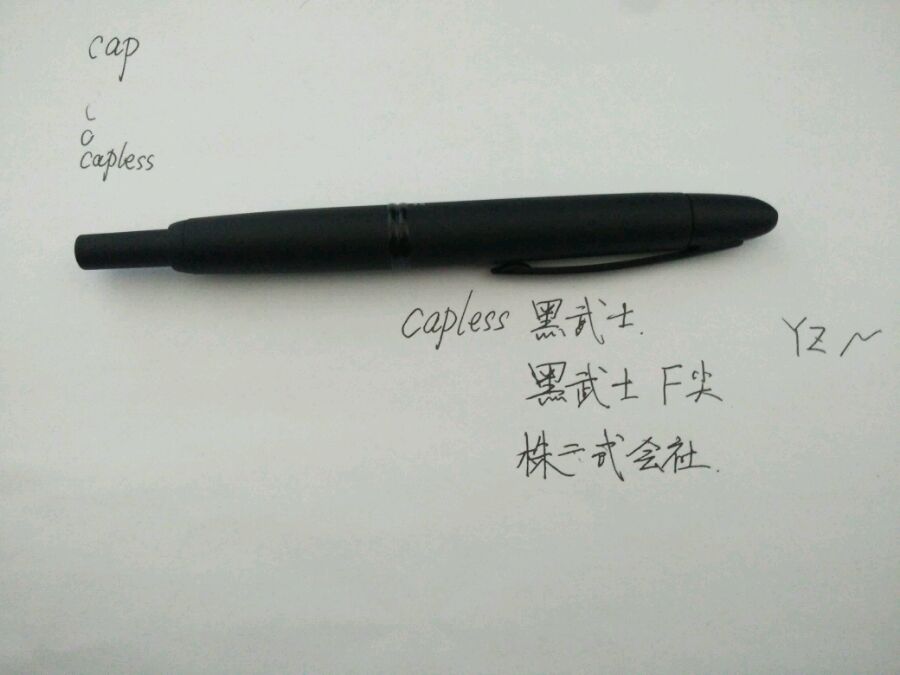 cap
c
o
capless
capless 黑武士.
YZ ~
黑武士 F尖
株式会社.